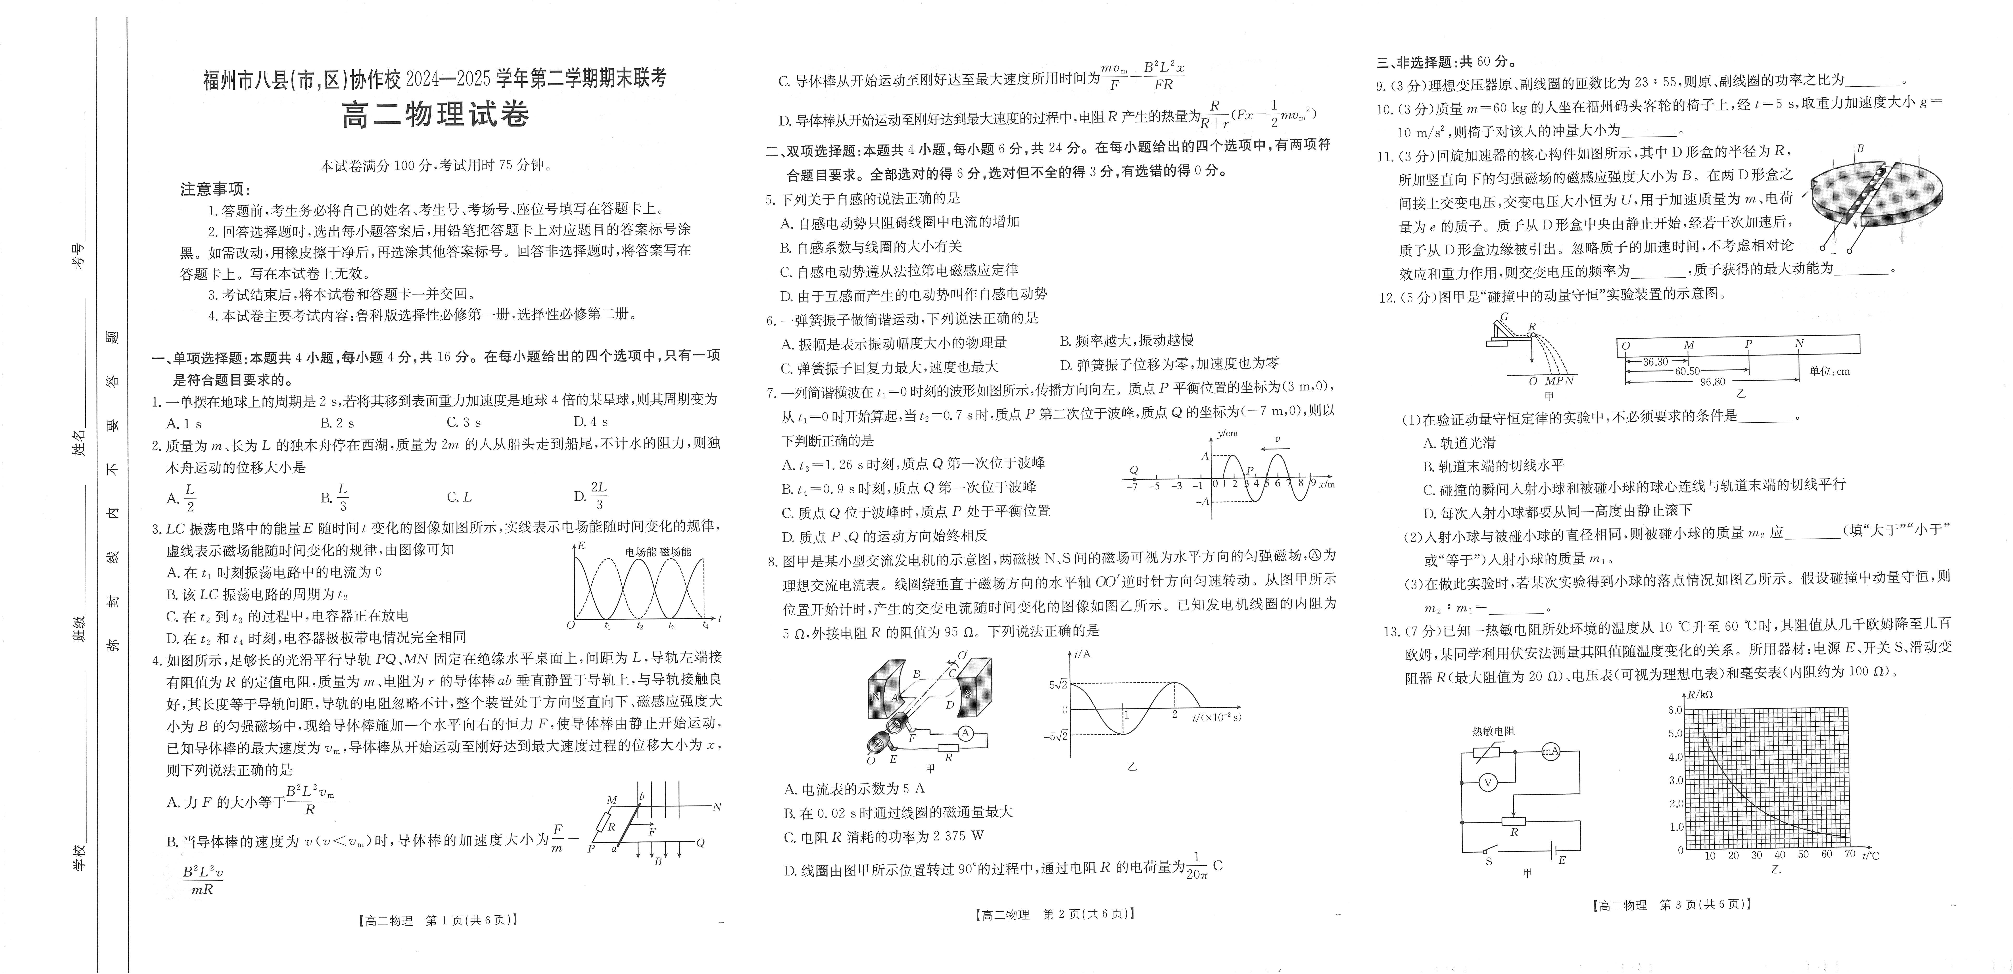 学校
班级
姓名
考号
密 封 线 内 不 要 答 题
福州市八县(市,区)协作校2024—2025学年第二学期期末联考
高二物理试卷
本试卷满分100分,考试用时75分钟。
注意事项:
1.答题前,考生务必将自己的姓名、考生号、考场号、座位号填写在答题卡上。
2.回答选择题时,选出每小题答案后,用铅笔把答题卡上对应题目的答案标号涂
黑。如需改动,用橡皮擦干净后,再选涂其他答案标号。回答非选择题时,将答案写在
答题卡上。写在本试卷上无效。
3.考试结束后,将本试卷和答题卡一并交回。
4.本试卷主要考试内容:鲁科版选择性必修第一册,选择性必修第二册。
一、单项选择题:本题共4小题,每小题4分,共16分。在每小题给出的四个选项中,只有一项
是符合题目要求的。
1.一单摆在地球上的周期是2 s,若将其移到表面重力加速度是地球4倍的某星球,则其周期变为
A.1 s B.2 s C.3 s D.4 s
2.质量为m、长为L的独木舟停在西湖,质量为2m的人从船头走到船尾,不计水的阻力,则独
木舟运动的位移大小是
A.L/2 B.L/3 C.L D.2L/3
3.LC振荡电路中的能量E随时间t变化的图像如图所示,实线表示电场能随时间变化的规律,
虚线表示磁场能随时间变化的规律,由图像可知
A.在t₁时刻振荡电路中的电流为0
B.该LC振荡电路的周期为t₂
C.在t₂到t₃的过程中,电容器正在放电
D.在t₂和t₄时刻,电容器极板带电情况完全相同
E 电场能 磁场能
O t₁ t₂ t₃ t₄ t
4.如图所示,足够长的光滑平行导轨PQ、MN固定在绝缘水平桌面上,间距为L,导轨左端接
有阻值为R的定值电阻,质量为m、电阻为r的导体棒ab垂直静置于导轨上,与导轨接触良
好,其长度等于导轨间距,导轨的电阻忽略不计,整个装置处于方向竖直向下、磁感应强度大
小为B的匀强磁场中,现给导体棒施加一个水平向右的恒力F,使导体棒由静止开始运动,
已知导体棒的最大速度为vₘ,导体棒从开始运动至刚好达到最大速度过程的位移大小为x,
则下列说法正确的是
A.力F的大小等于B²L²vₘ/R
B.当导体棒的速度为v(v<vₘ)时,导体棒的加速度大小为F/m−
B²L²v/mR
M b N
R F
P a B Q
【高二物理 第1页(共6页)】
C.导体棒从开始运动至刚好达至最大速度所用时间为mvₘ/F−B²L²x/FR
D.导体棒从开始运动至刚好达到最大速度的过程中,电阻R产生的热量为R/(R+r)(Fx−1/2mvₘ²)
二、双项选择题:本题共4小题,每小题6分,共24分。在每小题给出的四个选项中,有两项符
合题目要求。全部选对的得6分,选对但不全的得3分,有选错的得0分。
5.下列关于自感的说法正确的是
A.自感电动势只阻碍线圈中电流的增加
B.自感系数与线圈的大小有关
C.自感电动势遵从法拉第电磁感应定律
D.由于互感而产生的电动势叫作自感电动势
6.一弹簧振子做简谐运动,下列说法正确的是
A.振幅是表示振动幅度大小的物理量 B.频率越大,振动越慢
C.弹簧振子回复力最大,速度也最大 D.弹簧振子位移为零,加速度也为零
7.一列简谐横波在t₁=0时刻的波形如图所示,传播方向向左。质点P平衡位置的坐标为(3 m,0),
从t₁=0时开始算起,当t₂=0.7 s时,质点P第二次位于波峰,质点Q的坐标为(−7 m,0),则以
下判断正确的是
A.t₃=1.26 s时刻,质点Q第一次位于波峰
B.t₄=0.9 s时刻,质点Q第一次位于波峰
C.质点Q位于波峰时,质点P处于平衡位置
D.质点P、Q的运动方向始终相反
y/cm v
A
Q P
−7 −5 −3 −1 0 1 2 3 4 5 6 7 8 9 x/m
−A
8.图甲是某小型交流发电机的示意图,两磁极N、S间的磁场可视为水平方向的匀强磁场,Ⓐ为
理想交流电流表。线圈绕垂直于磁场方向的水平轴OO′逆时针方向匀速转动。从图甲所示
位置开始计时,产生的交变电流随时间变化的图像如图乙所示。已知发电机线圈的内阻为
5 Ω,外接电阻R的阻值为95 Ω。下列说法正确的是
O′ B C N A S D F A O E R
甲
i/A
5√2
0 1 2 t/(×10⁻² s)
−5√2
乙
A.电流表的示数为5 A
B.在0.02 s时通过线圈的磁通量最大
C.电阻R消耗的功率为2 375 W
D.线圈由图甲所示位置转过90°的过程中,通过电阻R的电荷量为1/20π C
【高二物理 第2页(共6页)】
三、非选择题:共60分。
9.(3分)理想变压器原、副线圈的匝数比为23∶55,则原、副线圈的功率之比为________。
10.(3分)质量m=60 kg的人坐在福州码头客轮的椅子上,经t=5 s,取重力加速度大小g=
10 m/s²,则椅子对该人的冲量大小为________。
11.(3分)回旋加速器的核心构件如图所示,其中D形盒的半径为R,
所加竖直向下的匀强磁场的磁感应强度大小为B。在两D形盒之
间接上交变电压,交变电压大小恒为U,用于加速质量为m、电荷
量为e的质子。质子从D形盒中央由静止开始,经若干次加速后,
质子从D形盒边缘被引出。忽略质子的加速时间,不考虑相对论
效应和重力作用,则交变电压的频率为________,质子获得的最大动能为________。
B
12.(5分)图甲是“碰撞中的动量守恒”实验装置的示意图。
G R
O M P N
甲
O M P N
36.30
60.50
96.80
单位:cm
乙
(1)在验证动量守恒定律的实验中,不必须要求的条件是________。
A.轨道光滑
B.轨道末端的切线水平
C.碰撞的瞬间入射小球和被碰小球的球心连线与轨道末端的切线平行
D.每次入射小球都要从同一高度由静止滚下
(2)入射小球与被碰小球的直径相同,则被碰小球的质量m₂应________(填“大于”“小于”
或“等于”)入射小球的质量m₁。
(3)在做此实验时,若某次实验得到小球的落点情况如图乙所示。假设碰撞中动量守恒,则
________。
13.(7分)已知一热敏电阻所处环境的温度从10 ℃升至60 ℃时,其阻值从几千欧姆降至几百
欧姆,某同学利用伏安法测量其阻值随温度变化的关系。所用器材:电源E、开关S、滑动变
阻器R(最大阻值为20 Ω)、电压表(可视为理想电表)和毫安表(内阻约为100 Ω)。
热敏电阻
mA
V
R
S E
甲
R/kΩ
6.0
5.0
4.0
3.0
2.0
1.0
0 10 20 30 40 50 60 70 t/℃
乙
【高二物理 第3页(共6页)】